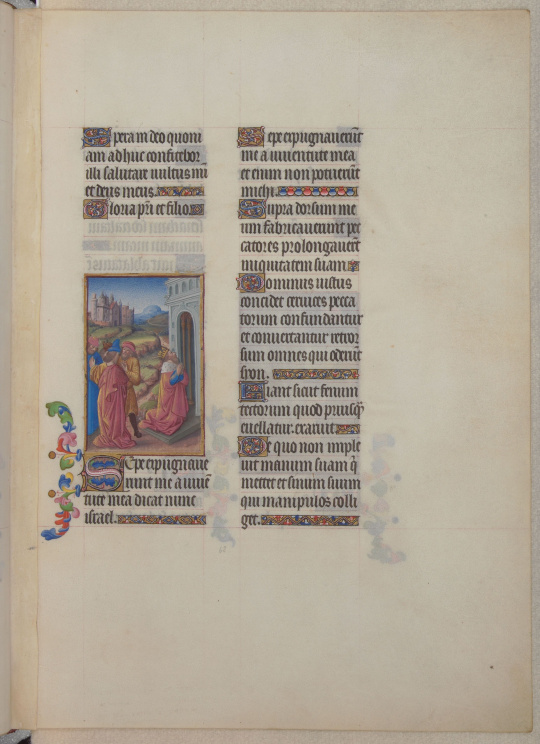 Spera in deo quoni
am adhuc confitebor
illi salutare vultus mei
et deus meus.
Gloria patri et filio.
Sepe expugnave
runt me a iuven
tute mea dicat nunc
israel.
Sepe expugnaverunt
me a iuventute mea
et enim non potuerunt
michi.
Supra dorsum me
um fabricaverunt pec
catores prolongaverunt
iniquitatem suam.
Dominus iustus
concidet cervices pecca
torum confundantur
et convertantur retror
sum omnes qui oderunt
syon.
Fiant sicut fenum
tectorum quod priusquam
evellatur exaruit
De quo non imple
vit manum suam qui
mettet et sinum suum
qui manipulos colli
get.